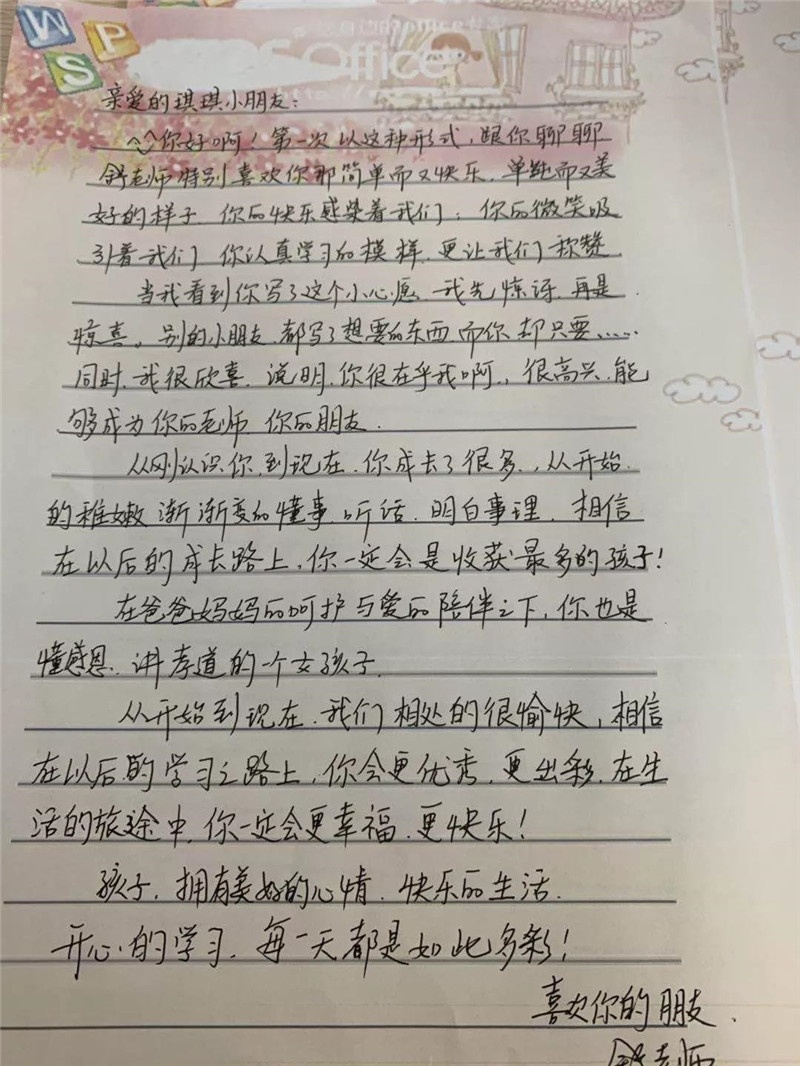 W P S
Office
亲爱的琪琪小朋友:
^^你好啊!第一次以这种形式,跟你聊聊
舒老师特别喜欢你那简单而又快乐,单纯而又美
好的样子.你的快乐感染着我们,你的微笑吸
引着我们 你认真学习的模样,更让我们称赞
当我看到你写了这个小心愿.我先惊讶,再是
惊喜。别的小朋友.都写了想要的东西.而你却只要……
同时,我很欣喜.说明,你很在乎我啊,很高兴.能
够成为你的老师.你的朋友.
从刚认识你,到现在.你成长了很多,从开始
的稚嫩渐渐变的懂事.听话.明白事理.相信
在以后的成长路上,你一定会是收获最多的孩子!
在爸爸妈妈的呵护与爱的陪伴之下,你也是
懂感恩、讲孝道的一个女孩子.
从开始到现在.我们相处的很愉快,相信
在以后的学习之路上,你会更优秀.更出彩.在生
活的旅途中,你一定会更幸福.更快乐!
孩子,拥有美好的心情.快乐的生活.
开心的学习,每一天都是如此多彩!
喜欢你的朋友.
舒老师